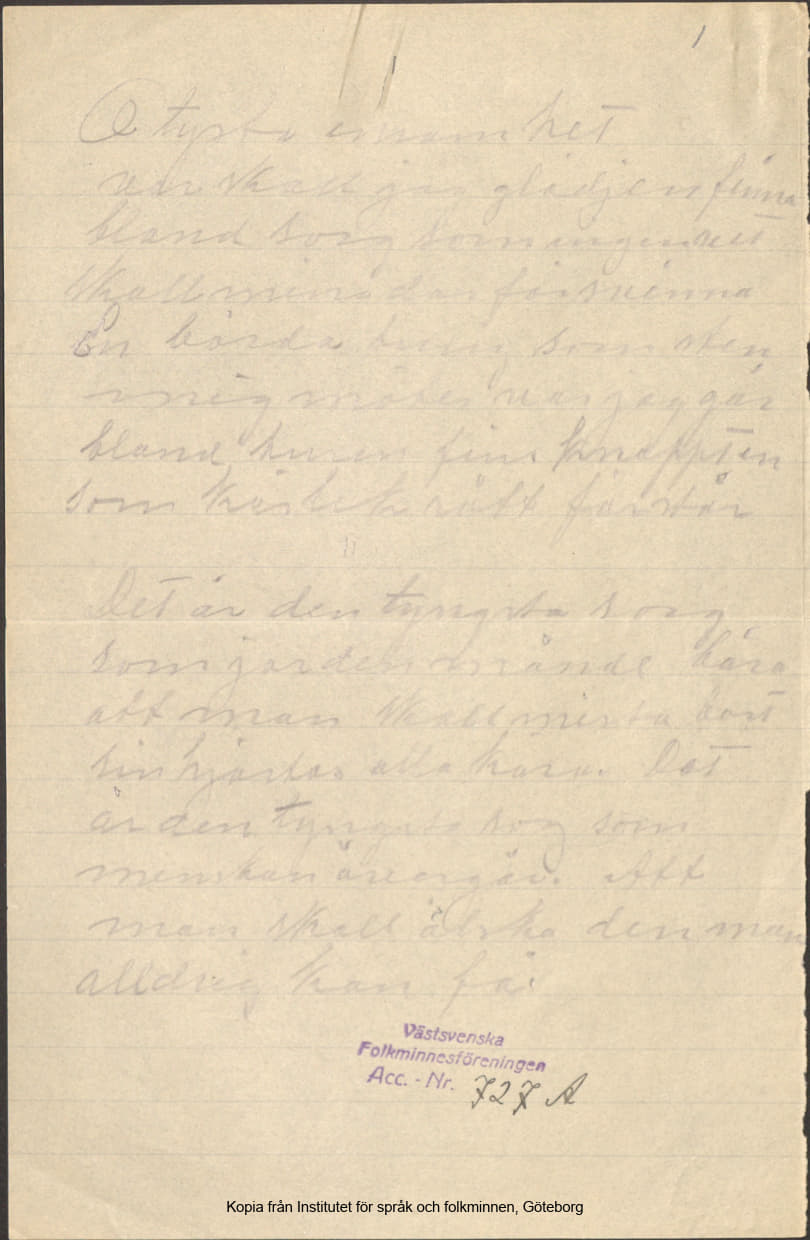 1
1
O tysta ensamhet
var skall jag glädjen finna
bland sorg som ingen vet
skall mina dar försvinna
En börda tung som sten
mig möter var jag går
bland tusen fins knappt en
som kärlek rätt förstår
II
Det är den tyngsta sorg
som jorden månde bära
att man skall mista bort
sin hjärtas alla kära. Det
är den tyngsta sog som
menskan övergår. Att
man skall älska den man
alldrig kan få.
Västsvenska
Folkminnesföreningen
Acc. - Nr. 727 A
Kopia från Institutet för språk och folkminnen, Göteborg